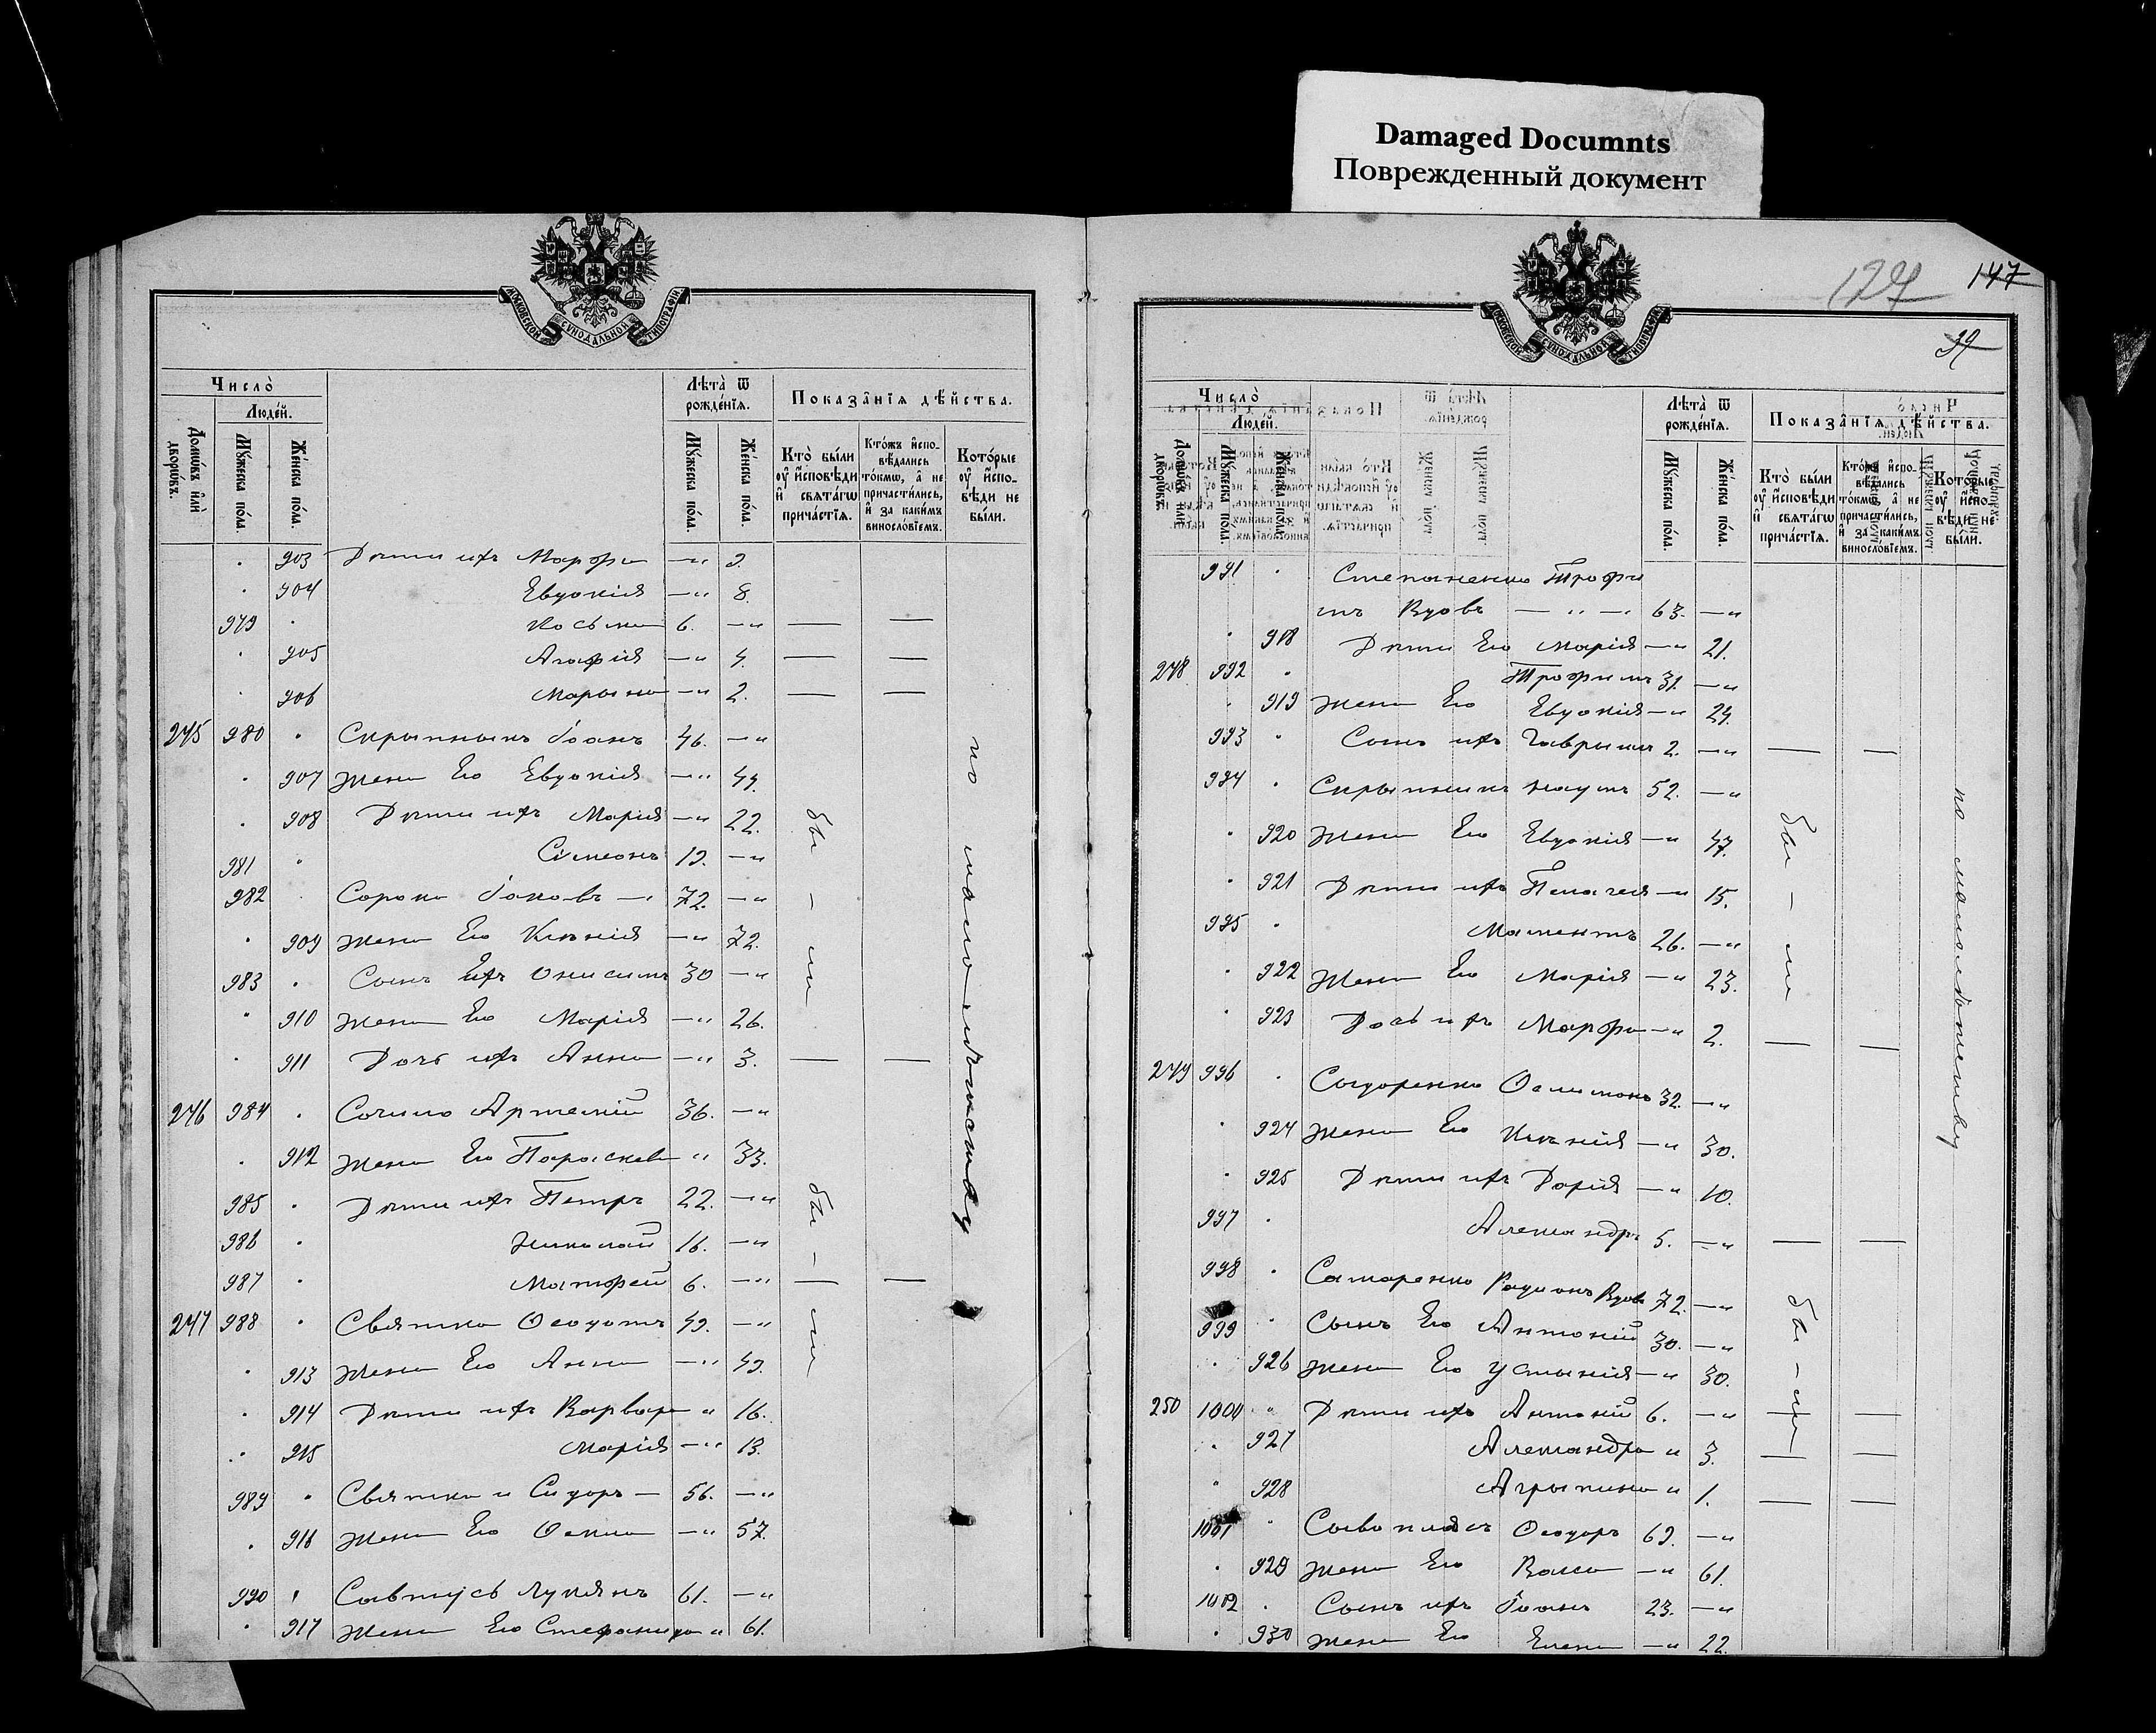 Damaged Documnts
Поврежденный документ
МОСКОВСКОЙ СѴНОДАЛЬНОЙ ТИПОГРАФІИ
Число̀
Людéй.
Домѡ́въ и҆лѝ дворѡ́въ.
Мꙋ́жеска по́ла.
Же́нска по́ла.
Лѣ́та ѿ рожде́нїѧ.
Мꙋ́жеска по́ла.
Же́нска по́ла.
Показа̑нїѧ дѣ́йства.
Кто̀ бы́ли оу҆ и҆сповѣди и҆ свѧта́гѡ прича́стїѧ.
Кто́жъ и҆спо- вѣдались то́кмѡ, а҆ не причасти́лись, и҆ за каки́мъ винословїемъ.
Кото́рые оу҆ и҆спо- вѣди не бы́ли.
903 Дѣти ихъ Марфа —" 9.
904 Евдокія —" 8.
979 Косьма 6. —"
905 Агафія —" 4.
906 Марина —" 2.
245 980 Скрыпникъ Іоанъ 46. —"
907 Жена Его Евдокія —" 44.
908 Дѣти ихъ Марія —" 22.
981 Сѵмеонъ 19. —"
982 Сорока Іаковъ — 72. —"
909 Жена Его Ксенія —" 72.
983 Сынъ Ихъ Онисимъ 30 —"
910 Жена Его Марія —" 26.
911 Дочь ихъ Анна —" 3.
246 984 Сочило Артемій 36. —"
912 Жена Его Параскева " 33.
985 Дѣти ихъ Петръ 22. —"
986 Николай 16. —"
987 Матфей 6. —"
247 988 Святка Ѳеодотъ 49. —"
913 Жена Его Анна —" 49.
914 Дѣти ихъ Варвара " 16.
915 Марія —" 13.
989 Святка Сидоръ — 56. —"
916 Жена Его —" 57.
990 Савтусь Лукіянъ 61. —"
917 Жена Его Стефанида " 61.
бы-ли
бы-ли
по малолѣтству
147
39
МОСКОВСКОЙ СѴНОДАЛЬНОЙ ТИПОГРАФІИ
Число̀
Людéй.
Домѡ́въ и҆лѝ дворѡ́въ.
Мꙋ́жеска по́ла.
Же́нска по́ла.
Лѣ́та ѿ рожде́нїѧ.
Мꙋ́жеска по́ла.
Же́нска по́ла.
Показа̑нїѧ дѣ́йства.
Кто̀ бы́ли оу҆ и҆сповѣди и҆ свѧта́гѡ прича́стїѧ.
Кто́жъ и҆спо- вѣдались то́кмѡ, а҆ не причасти́лись, и҆ за каки́мъ винословїемъ.
Кото́рые оу҆ и҆спо- вѣди не бы́ли.
991 Степаненко Трофи
мъ Вдовъ — " — 63. —"
918 Дѣти Его Марія —" 21.
248 992 Трофимъ 31. —"
919 Жена Его Евдокія —" 24.
993 Сынъ ихъ Гаврилъ 2. —"
994 Скрыпникъ Наумъ 52. —"
920 Жена Его Евдокія —" 47.
921 Дѣти ихъ Пелагея —" 15.
995 Мамантъ 26. —"
922 Жена Его Марія —" 23.
923 Дочь ихъ Марфа —" 2.
249 996 Сидоренко Филимонъ 32. —"
924 Жена Его Ксенія —" 30.
925 Дѣти ихъ Дарія —" 10.
997 Александръ 5. —"
998 Самаренко Родионъ Вдовъ 72. —"
999 Сынъ Его Антоній 30. —"
926 Жена Его Устинія —" 30.
250 1000 Дѣти ихъ Антоній 6. —"
927 Александра " 3.
928 Агрипина " 1.
1001 Ѳеодоръ 69. —"
929 Жена Его Васса —" 61.
1002 Сынъ ихъ Іоанъ 23. —"
930 Жена Его Елена —" 22.
бы-ли
бы-ли
по малолѣтству